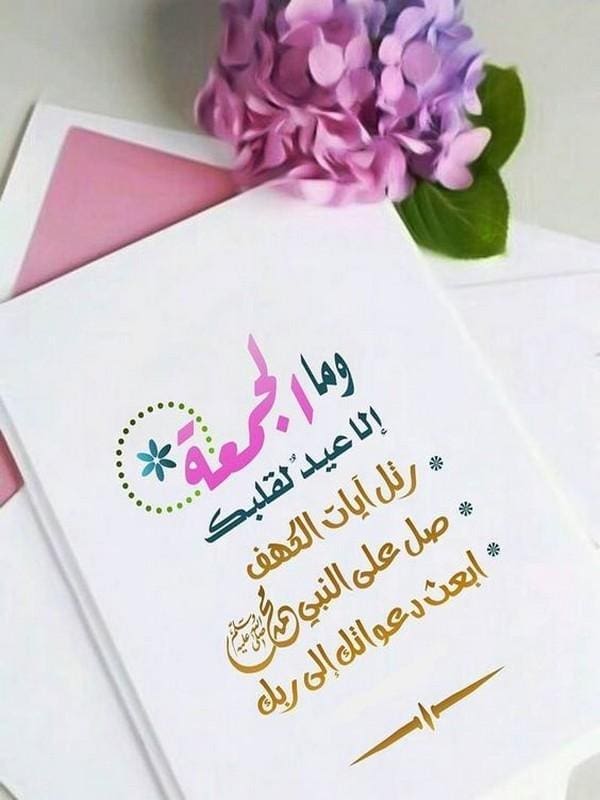 وما الجمعة
إلا عيدٌ لقلبك
* رتل آيات الكهف
* صل على النبي محمد صلى الله عليه وسلم
* ابعث دعواتك إلى ربك